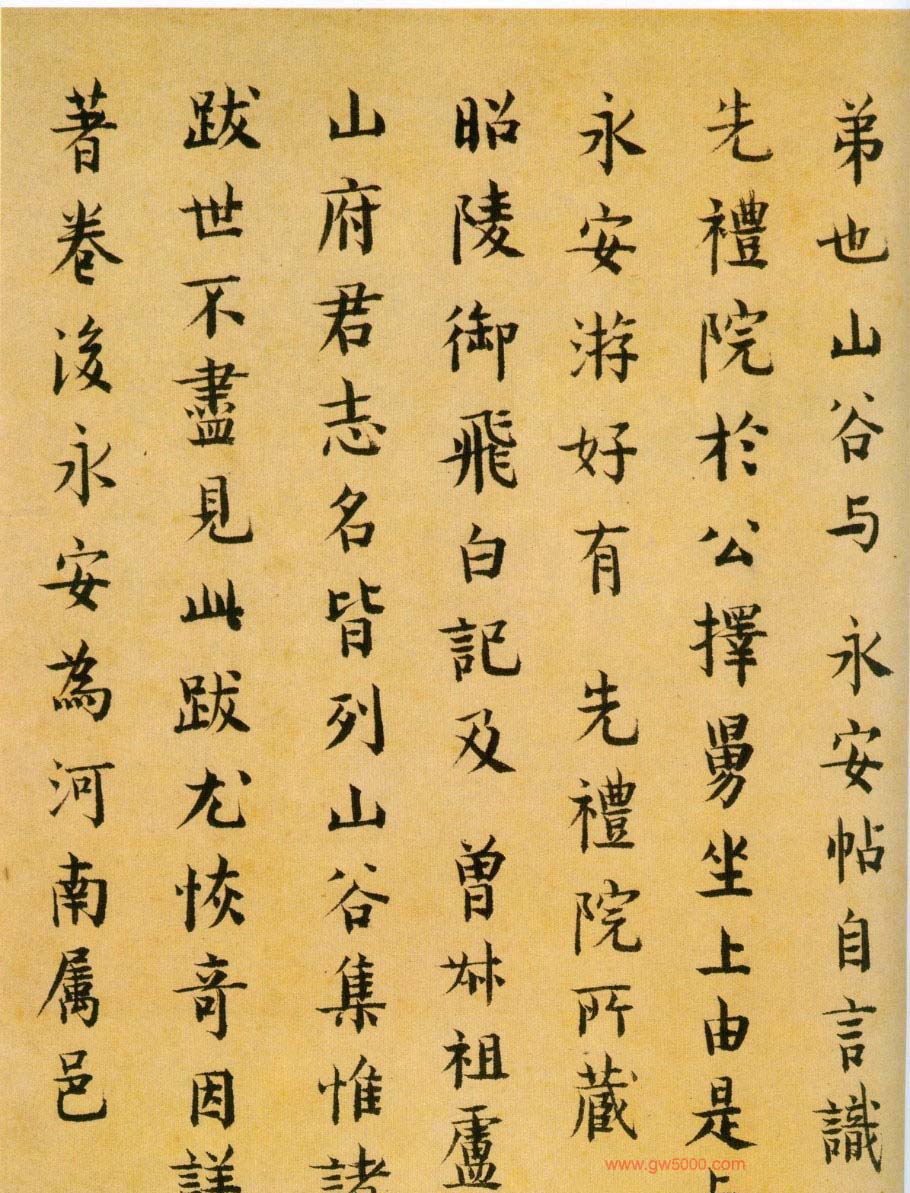 弟也山谷与 永安帖自言識
先禮院於公擇舅坐上由是
永安游好有 先禮院所藏
昭陵御飛白記及 曽叔祖盧
山府君志名皆列山谷集惟諸
跋世不盡見此跋尤恢奇因詳
著卷後永安為河南属邑
www.gw5000.com